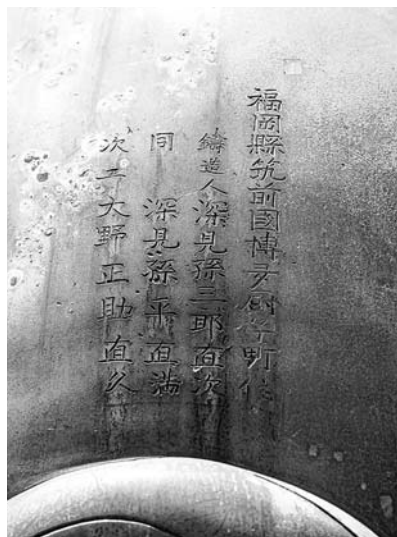 福岡縣筑前國博多厨子町住
鑄造人深見孫三郎直次
同 深見孫平直満
次工大野正助直久